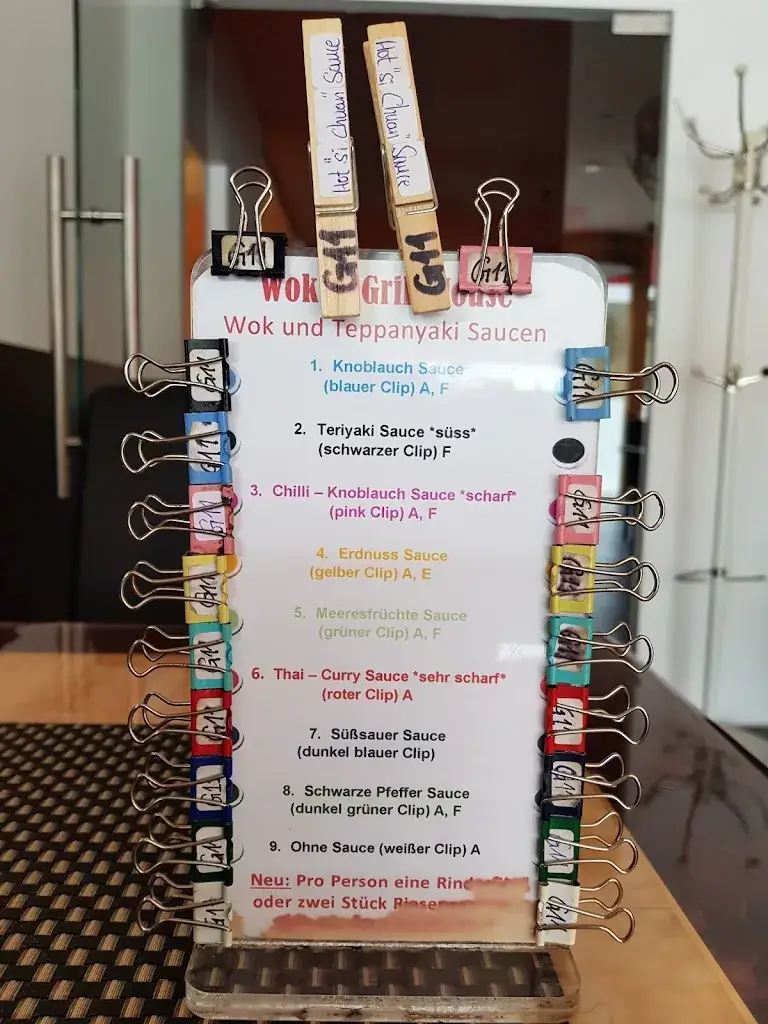 Hot "si chuan" Sauce
Hot "si chuan" Sauce
G11
G11
G11
G11
Wok
Wok und Teppanyaki Saucen
1. Knoblauch Sauce
(blauer Clip) A, F
2. Teriyaki Sauce *süss*
(schwarzer Clip) F
3. Chilli – Knoblauch Sauce *scharf*
(pink Clip) A, F
4. Erdnuss Sauce
(gelber Clip) A, E
5. Meeresfrüchte Sauce
(grüner Clip) A, F
6. Thai – Curry Sauce *sehr scharf*
(roter Clip) A
7. Süßsauer Sauce
(dunkel blauer Clip)
8. Schwarze Pfeffer Sauce
(dunkel grüner Clip) A, F
9. Ohne Sauce (weißer Clip) A
Neu: Pro Person eine
oder zwei Stück
G11
G11
G11
G11
G11
G11
G11
G11
G11
G11
G11
G11
G11
G11
G11
G11
G11